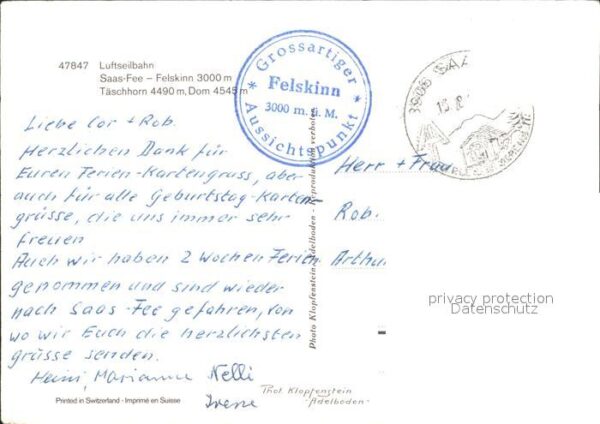 47847 Luftseilbahn
Saas-Fee – Felskinn 3000 m
Täschhorn 4490 m, Dom 4545 m
Grossartiger
Felskinn
3000 m. ü. M.
Aussichtspunkt
3906 SAA
Liebe Cor + Rob.
Herzlichen Dank für
Euren Ferien-Kartengruss, aber
auch für alle Geburtstag-Karten-
grüsse, die uns immer sehr
freuen
Auch wir haben 2 Wochen Ferien
genommen und sind wieder
nach Saas-Fee gefahren, von
wo wir Euch die herzlichsten
grüsse senden.
Heini, Marianne Nelli
Irene
Photo Klopfenstein, Adelboden - Reproduktion verboten
Herr + Frau
Rob.
Arthu
privacy protection
Datenschutz
Phot. Klopfenstein
-Adelboden-
Printed in Switzerland - Imprimé en Suisse